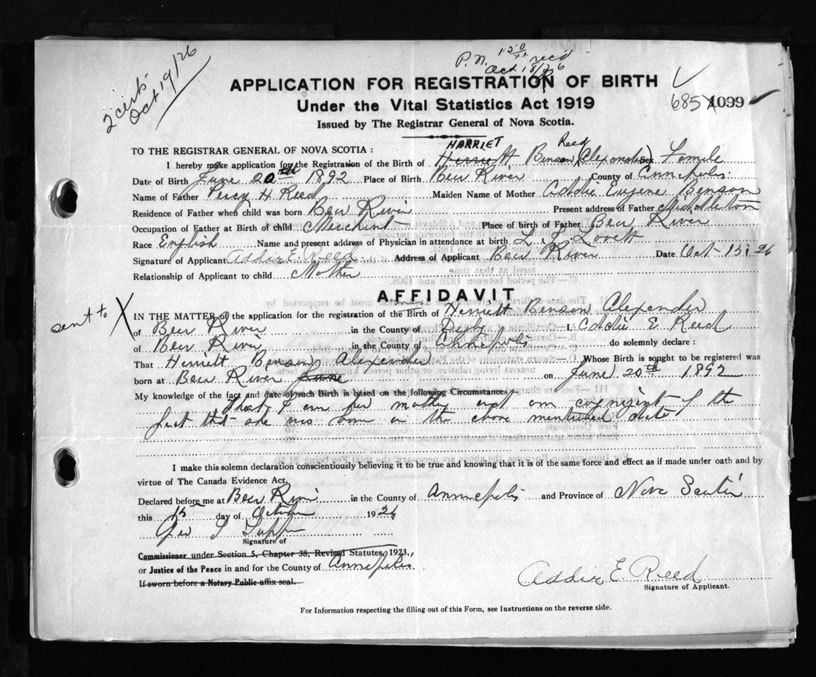 2 certs
Oct 19/26
P.N. 1 50 rec'd
Oct 18/26
APPLICATION FOR REGISTRATION OF BIRTH
6851099
Under the Vital Statistics Act 1919
Issued by The Registrar General of Nova Scotia.
TO THE REGISTRAR GENERAL OF NOVA SCOTIA :
HARRIET Reed
I hereby make application for the Registration of the Birth of Benson (Alexander) Sex Female
Date of Birth June 20th 1892 Place of Birth Bear River County of Annapolis
Name of Father Percy H Reed Maiden Name of Mother Addie Eugene Benson
Residence of Father when child was born Bear River Present address of Father Middleton
Occupation of Father at Birth of child Merchant Place of birth of Father Bear River
Race English Name and present address of Physician in attendance at birth L. J. Lovett
Signature of Applicant Addie E. Reed Address of Applicant Bear River Date Oct 15, 26
Relationship of Applicant to child Mother
AFFIDAVIT
sent to X
IN THE MATTER of the application for the registration of the Birth of Herriett Benson Alexander
of Bear River in the County of Digby I, Addie E Reed
of Bear River in the County of Annapolis do solemnly declare :
That Herriett Benson Alexander Whose Birth is sought to be registered was
born at Bear River June on June 20th 1892
My knowledge of the fact and date of such Birth is based on the following Circumstances
That I am her mother and am cognizant of the
fact that she was born on the above mentioned date
I make this solemn declaration conscientiously believing it to be true and knowing that it is of the same force and effect as if made under oath and by
virtue of The Canada Evidence Act.
Declared before me at Bear River in the County of Annapolis and Province of Nova Scotia
this 15 day of October 1926
Geo
Signature of
Commissioner under Section 5, Chapter 38, Revised Statutes, 1923.,
or Justice of the Peace in and for the County of Annapolis
If sworn before a Notary Public affix seal.
Addie E. Reed
Signature of Applicant.
For Information respecting the filling out of this Form, see Instructions on the reverse side.